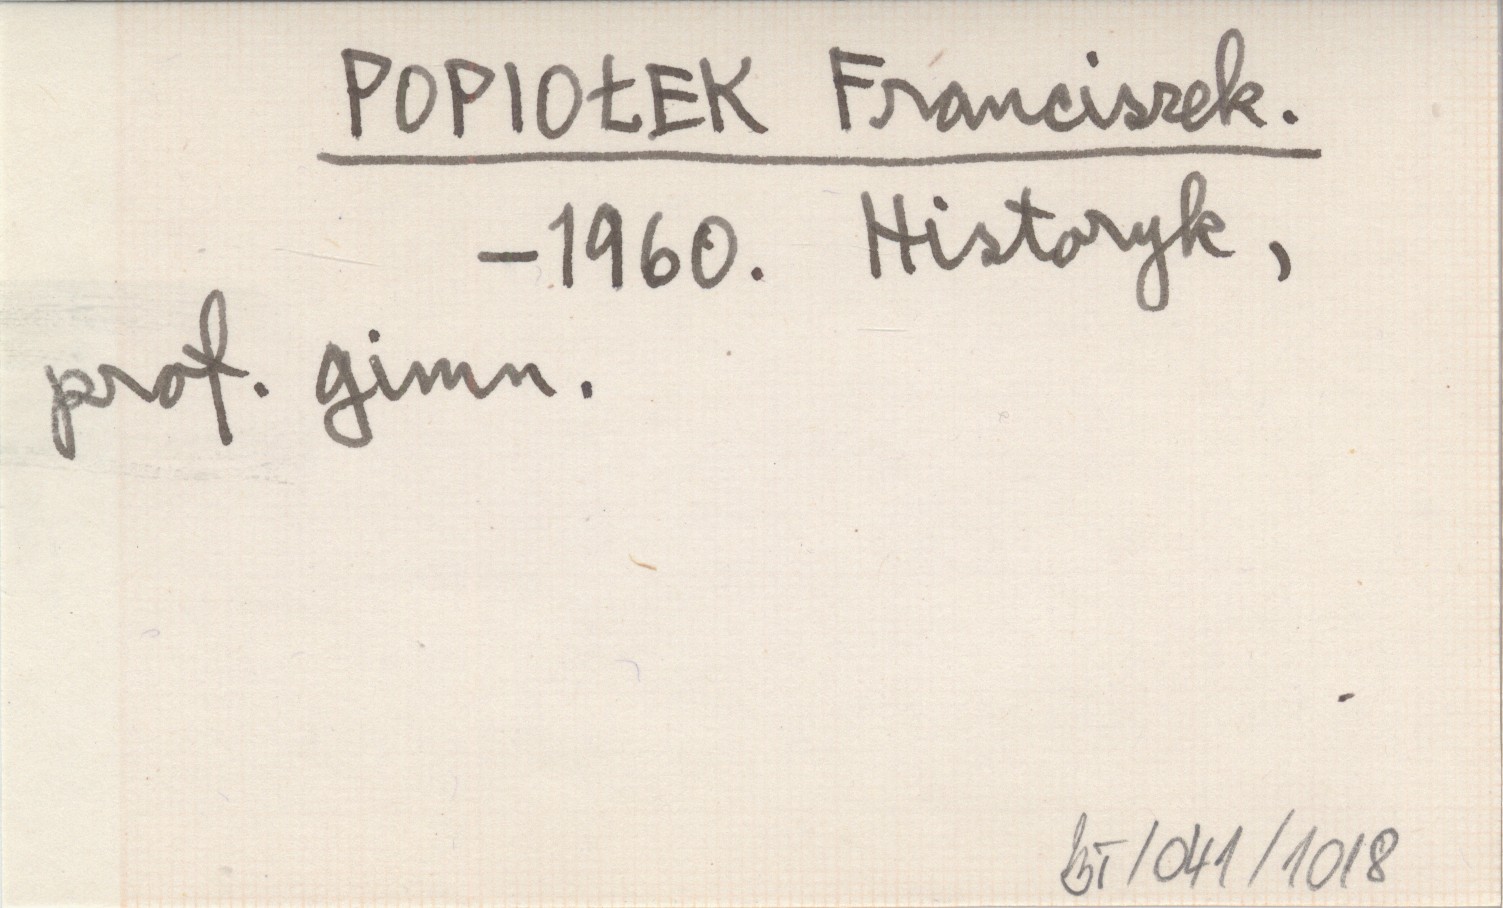 POPIOŁEK Franciszek.
-1960. Historyk,
prof. gimn.
/041/1018